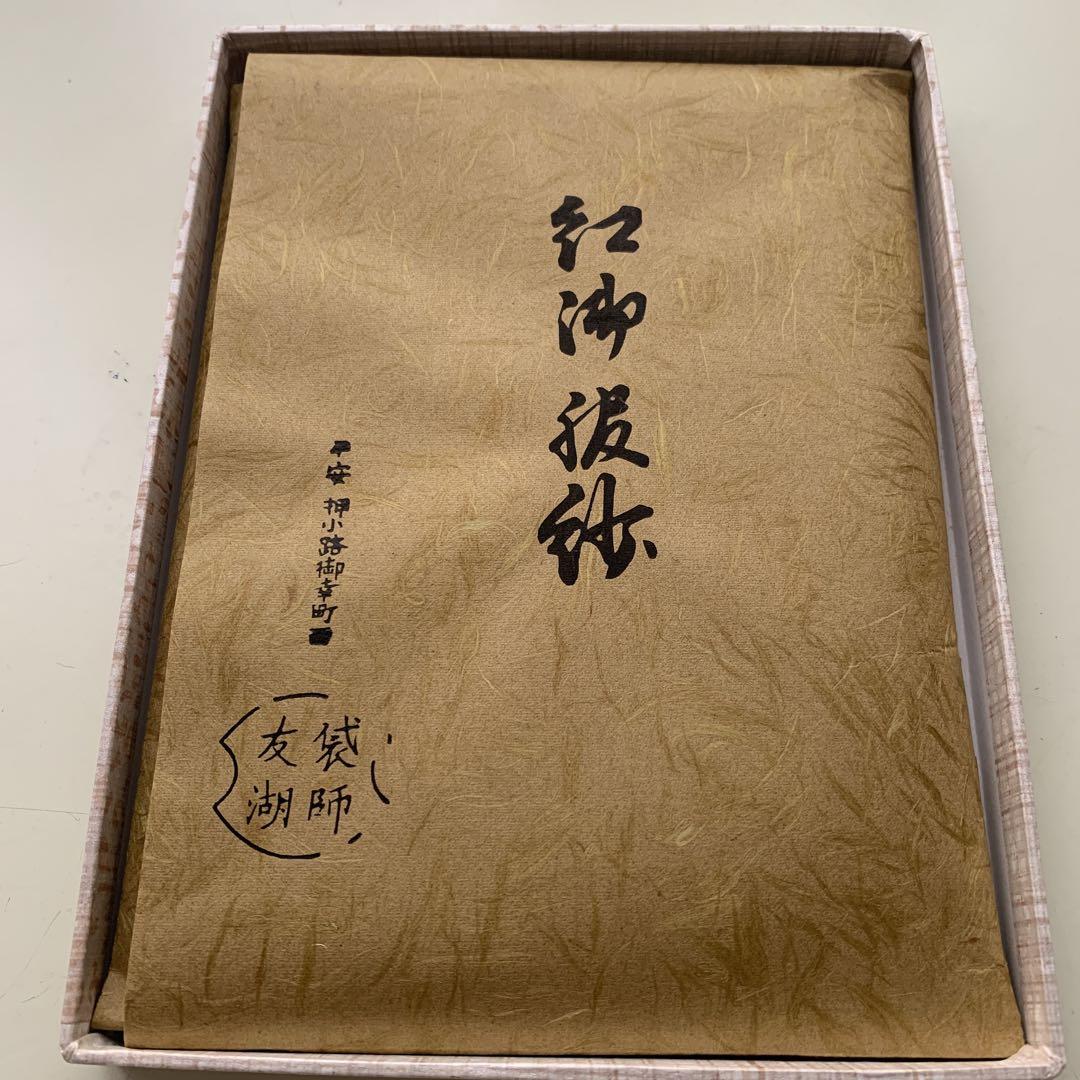 紅御服紗
平安 押小路御幸町
袋師
友湖